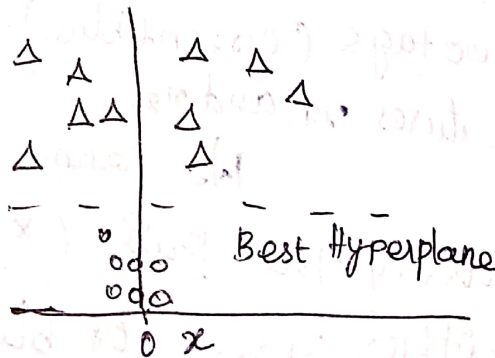 Best Hyperplane
0 x